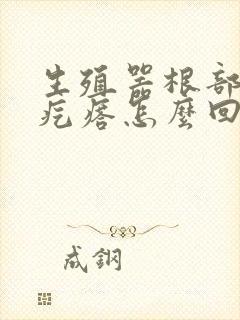 生殖器根部
疙瘩怎麼回
成鋼